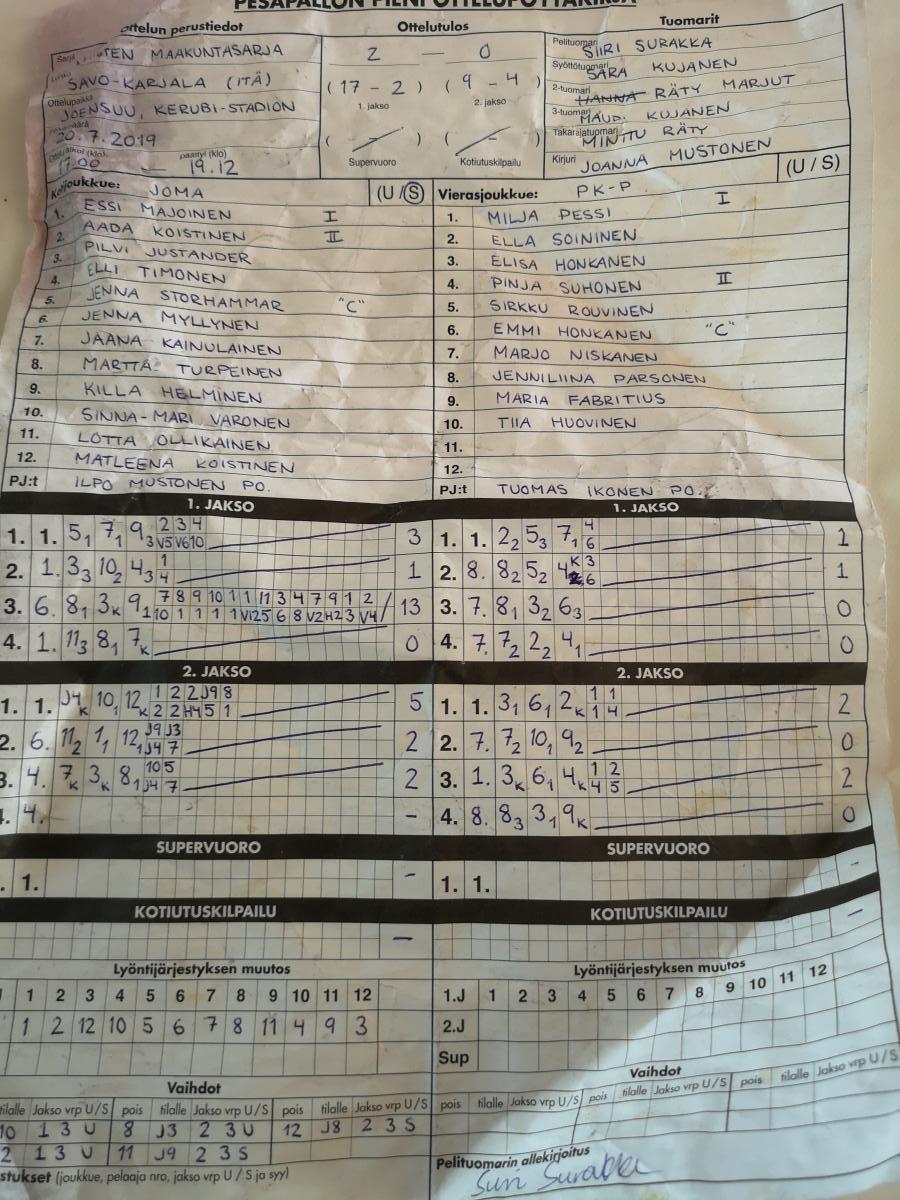 PESÄPALLON PIENI OTTELUPÖYTÄKIRJA
Ottelun perustiedot
Ottelutulos
Tuomarit
Sarja MAAKUNTASARJA
SAVO-KARJALA (ITÄ)
Ottelupaikka JOENSUU, KERUBI-STADION
20.7.2019
17.00 — päättyi (klo) 19.12
2 — 0
(17 - 2) (9 - 4)
1. jakso 2. jakso
( — ) ( — )
Supervuoro Kotiutuskilpailu
Pelituomari SIIRI SURAKKA
Syöttötuomari SARA KUJANEN
2-tuomari HANNA RÄTY MARJUT
3-tuomari MAUD. KUJANEN
Takarajatuomari MINTTU RÄTY
Kirjuri JOANNA MUSTONEN
Kotijoukkue: JOMA (U/S)
1. ESSI MAJOINEN I
2. AADA KOISTINEN II
3. PILVI JUSTANDER
4. ELLI TIMONEN
5. JENNA STORHAMMAR "C"
6. JENNA MYLLYNEN
7. JAANA KAINULAINEN
8. MARTTA TURPEINEN
9. KILLA HELMINEN
10. SINNA-MARI VARONEN
11. LOTTA OLLIKAINEN
12. MATLEENA KOISTINEN
PJ:t ILPO MUSTONEN PO.
Vierasjoukkue: PK-P (U/S)
1. MILJA PESSI I
2. ELLA SOININEN
3. ELISA HONKANEN
4. PINJA SUHONEN II
5. SIRKKU ROUVINEN
6. EMMI HONKANEN "C"
7. MARJO NISKANEN
8. JENNILIINA PARSONEN
9. MARIA FABRITIUS
10. TIIA HUOVINEN
11.
12.
PJ:t TUOMAS IKONEN PO.
1. JAKSO
1. 1. 5₁ 7₁ 9₃ 2 3 4 3
V5 V6 10
2. 1. 3₃ 10₂ 4₃ 1 1
4
3. 6. 8₁ 3ₖ 9₁ 7 8 9 10 1 1 11 3 4 7 9 1 2 / 13
10 1 1 1 1 V12 5 6 8 V2 H2 3 V4
4. 1. 11₃ 8₁ 7ₖ 0
1. JAKSO
1. 1. 2₂ 5₃ 7₁ 4 1
6
2. 8. 8₂ 5₂ 4 K 3 1
6
3. 7. 8₁ 3₂ 6₃ 0
4. 7. 7₂ 2₂ 4₁ 0
2. JAKSO
1. 1. J4ₖ 10₁ 12ₖ 1 2 2 J9 8 5
2 2 H4 5 1
2. 6. 11₂ 1₁ 12₁ J9 J3 2
J4 7
3. 4. 7ₖ 3ₖ 8₁ 10 5 2
J4 7
4. 4. -
2. JAKSO
1. 1. 3₁ 6₁ 2ₖ 1 1 2
1 4
2. 7. 7₂ 10₁ 9₂ 0
3. 1. 3ₖ 6₁ 4ₖ 1 2 2
4 5
4. 8. 8₃ 3₁ 9ₖ 0
SUPERVUORO
1. -
SUPERVUORO
1. 1. -
KOTIUTUSKILPAILU
-
KOTIUTUSKILPAILU
-
Lyöntijärjestyksen muutos
1 2 3 4 5 6 7 8 9 10 11 12
1 2 12 10 5 6 7 8 11 4 9 3
Lyöntijärjestyksen muutos
1.J 1 2 3 4 5 6 7 8 9 10 11 12
2.J
Sup
Vaihdot
tilalle Jakso vrp U/S pois tilalle Jakso vrp U/S pois tilalle Jakso vrp U/S
10 1 3 U 8 J3 2 3 U 12 J8 2 3 S
2 1 3 U 11 J9 2 3 S
(joukkue, pelaaja nro, jakso vrp U/S ja syy)
Vaihdot
pois tilalle Jakso vrp U/S pois tilalle Jakso vrp U/S pois tilalle Jakso vrp U/S
Pelituomarin allekirjoitus
Siiri Surakka